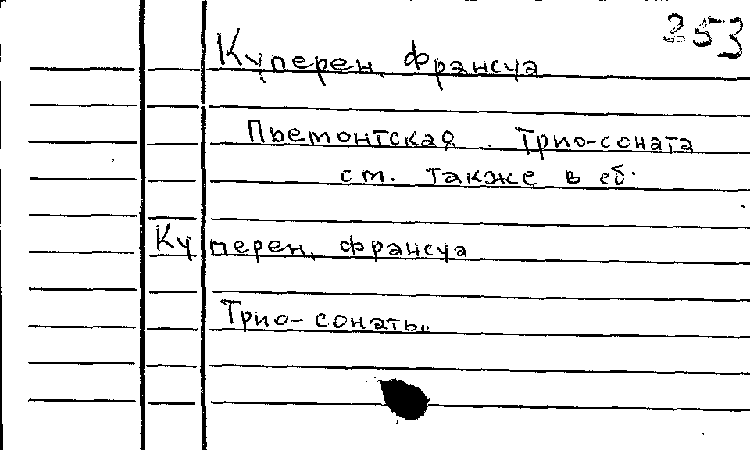 253
Куперен, Франсуа
Пьемонтская. Трио-соната
см. также в сб.
Куперен, Франсуа
Трио-сонаты.